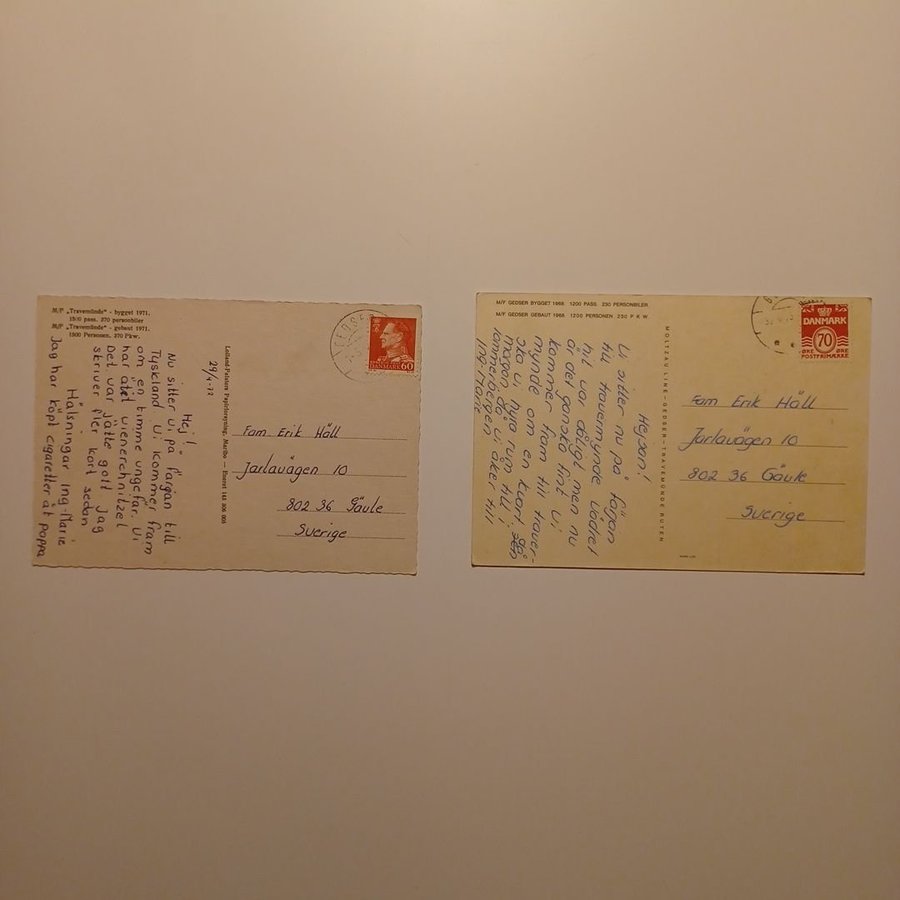 M/F „Travemünde" - bygget 1971.
1500 pass. 370 personbiler
M/F „Travemünde" - gebaut 1971.
1500 Personen, 370 Pkw.
29/4-72
Hej!
Nu sitter vi på färjan till
Tyskland Vi kommer fram
om en timme ungefär. Vi
har ätit wienerchnitzel
Det var jätte gott Jag
skriver fler kort sedan
Hälsningar Ing-Marie
Jag har köpt cigaretter åt pappa
Lolland-Falsters Papirforsyning, Maribo
GEDSER
DANMARK 60
Fam Erik Häll
Jarlavägen 10
802 36 Gävle
Sverige
M/F GEDSER BYGGET 1968 1200 PASS. 230 PERSONBILER
M/F GEDSER GEBAUT 1968 1200 PERSONEN 230 P K W.
Hejsan!
Vi sitter nu på färjan
till Travemynde Vädret
hit var dåligt men nu
är det ganska fint Vi
kommer fram till trave-
mynde om en kvart.
ska vi hyra rum till i
morgon då vi åker till
Ing-Marie
MOLTZAU LINE-GEDSER-TRAVEMÜNDE RUTEN
DANMARK
70
ØRE ØRE
POSTFRIMÆRKE
Fam Erik Häll
Jarlavägen 10
802 36 Gävle
Sverige